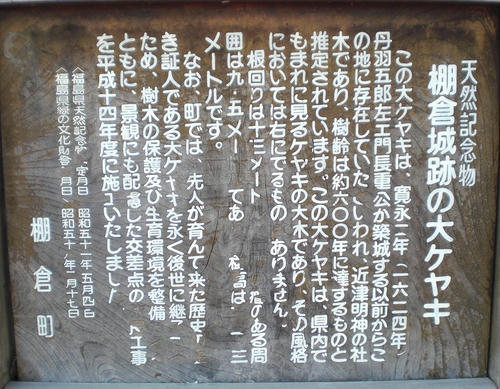 天然記念物
棚倉城跡の大ケヤキ
この大ケヤキは、寛永二年(一六二四年)
丹羽五郎左エ門長重公が築城する以前からこ
の地に存在していた いわれ、近津明神の社
木であり、樹齢は約六〇〇年に達するものと
推定されています。この大ケヤキは、県内で
もまれに見るケヤキの大木であり、その風格
においては右にでるもの ありません。
根回りは十三メート のある周
囲は九・五メー であ 高は 一三
メートルです。
なお、町では、先人が育んで来た歴史
き証人である大ケヤキを永く後世に継
ため、樹木の保護及び生育環境を整備
ともに、景観にも配慮した交差点の 工事
を平成十四年度に施工いたしまし
〈福島県天然記念物 定月日 昭和五十一年五月四日
〈福島県緑の文化財 月日 昭和五十 年 月十七日
棚倉町